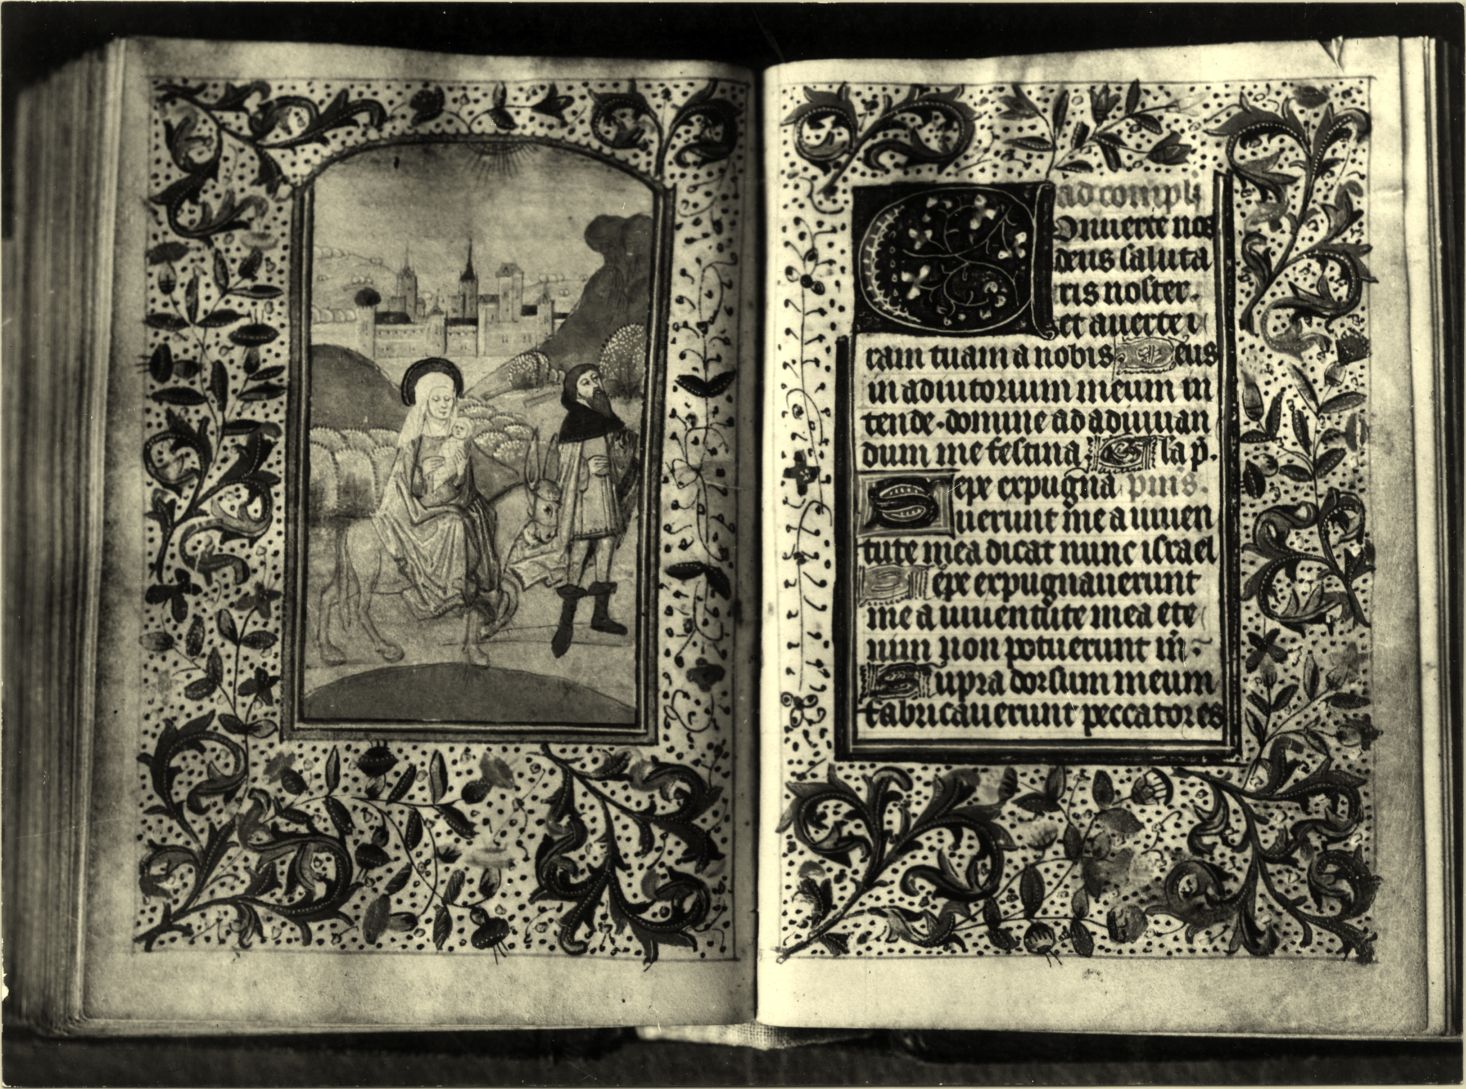 ad compl
Onuerte nos
deus saluta
ris noster.
et auerte i
ram tuam a nobis Deus
in adiutorium meum in
tende. domine ad adiuuan
dum me festina. Gla p̄.
Sepe expugna pūs.
uerunt me a iuuen
tute mea dicat nunc israel
Sepe expugnauerunt
me a iuuentute mea ete
nim non potuerunt m̄.
Supra dorsum meum
fabricauerunt peccatores